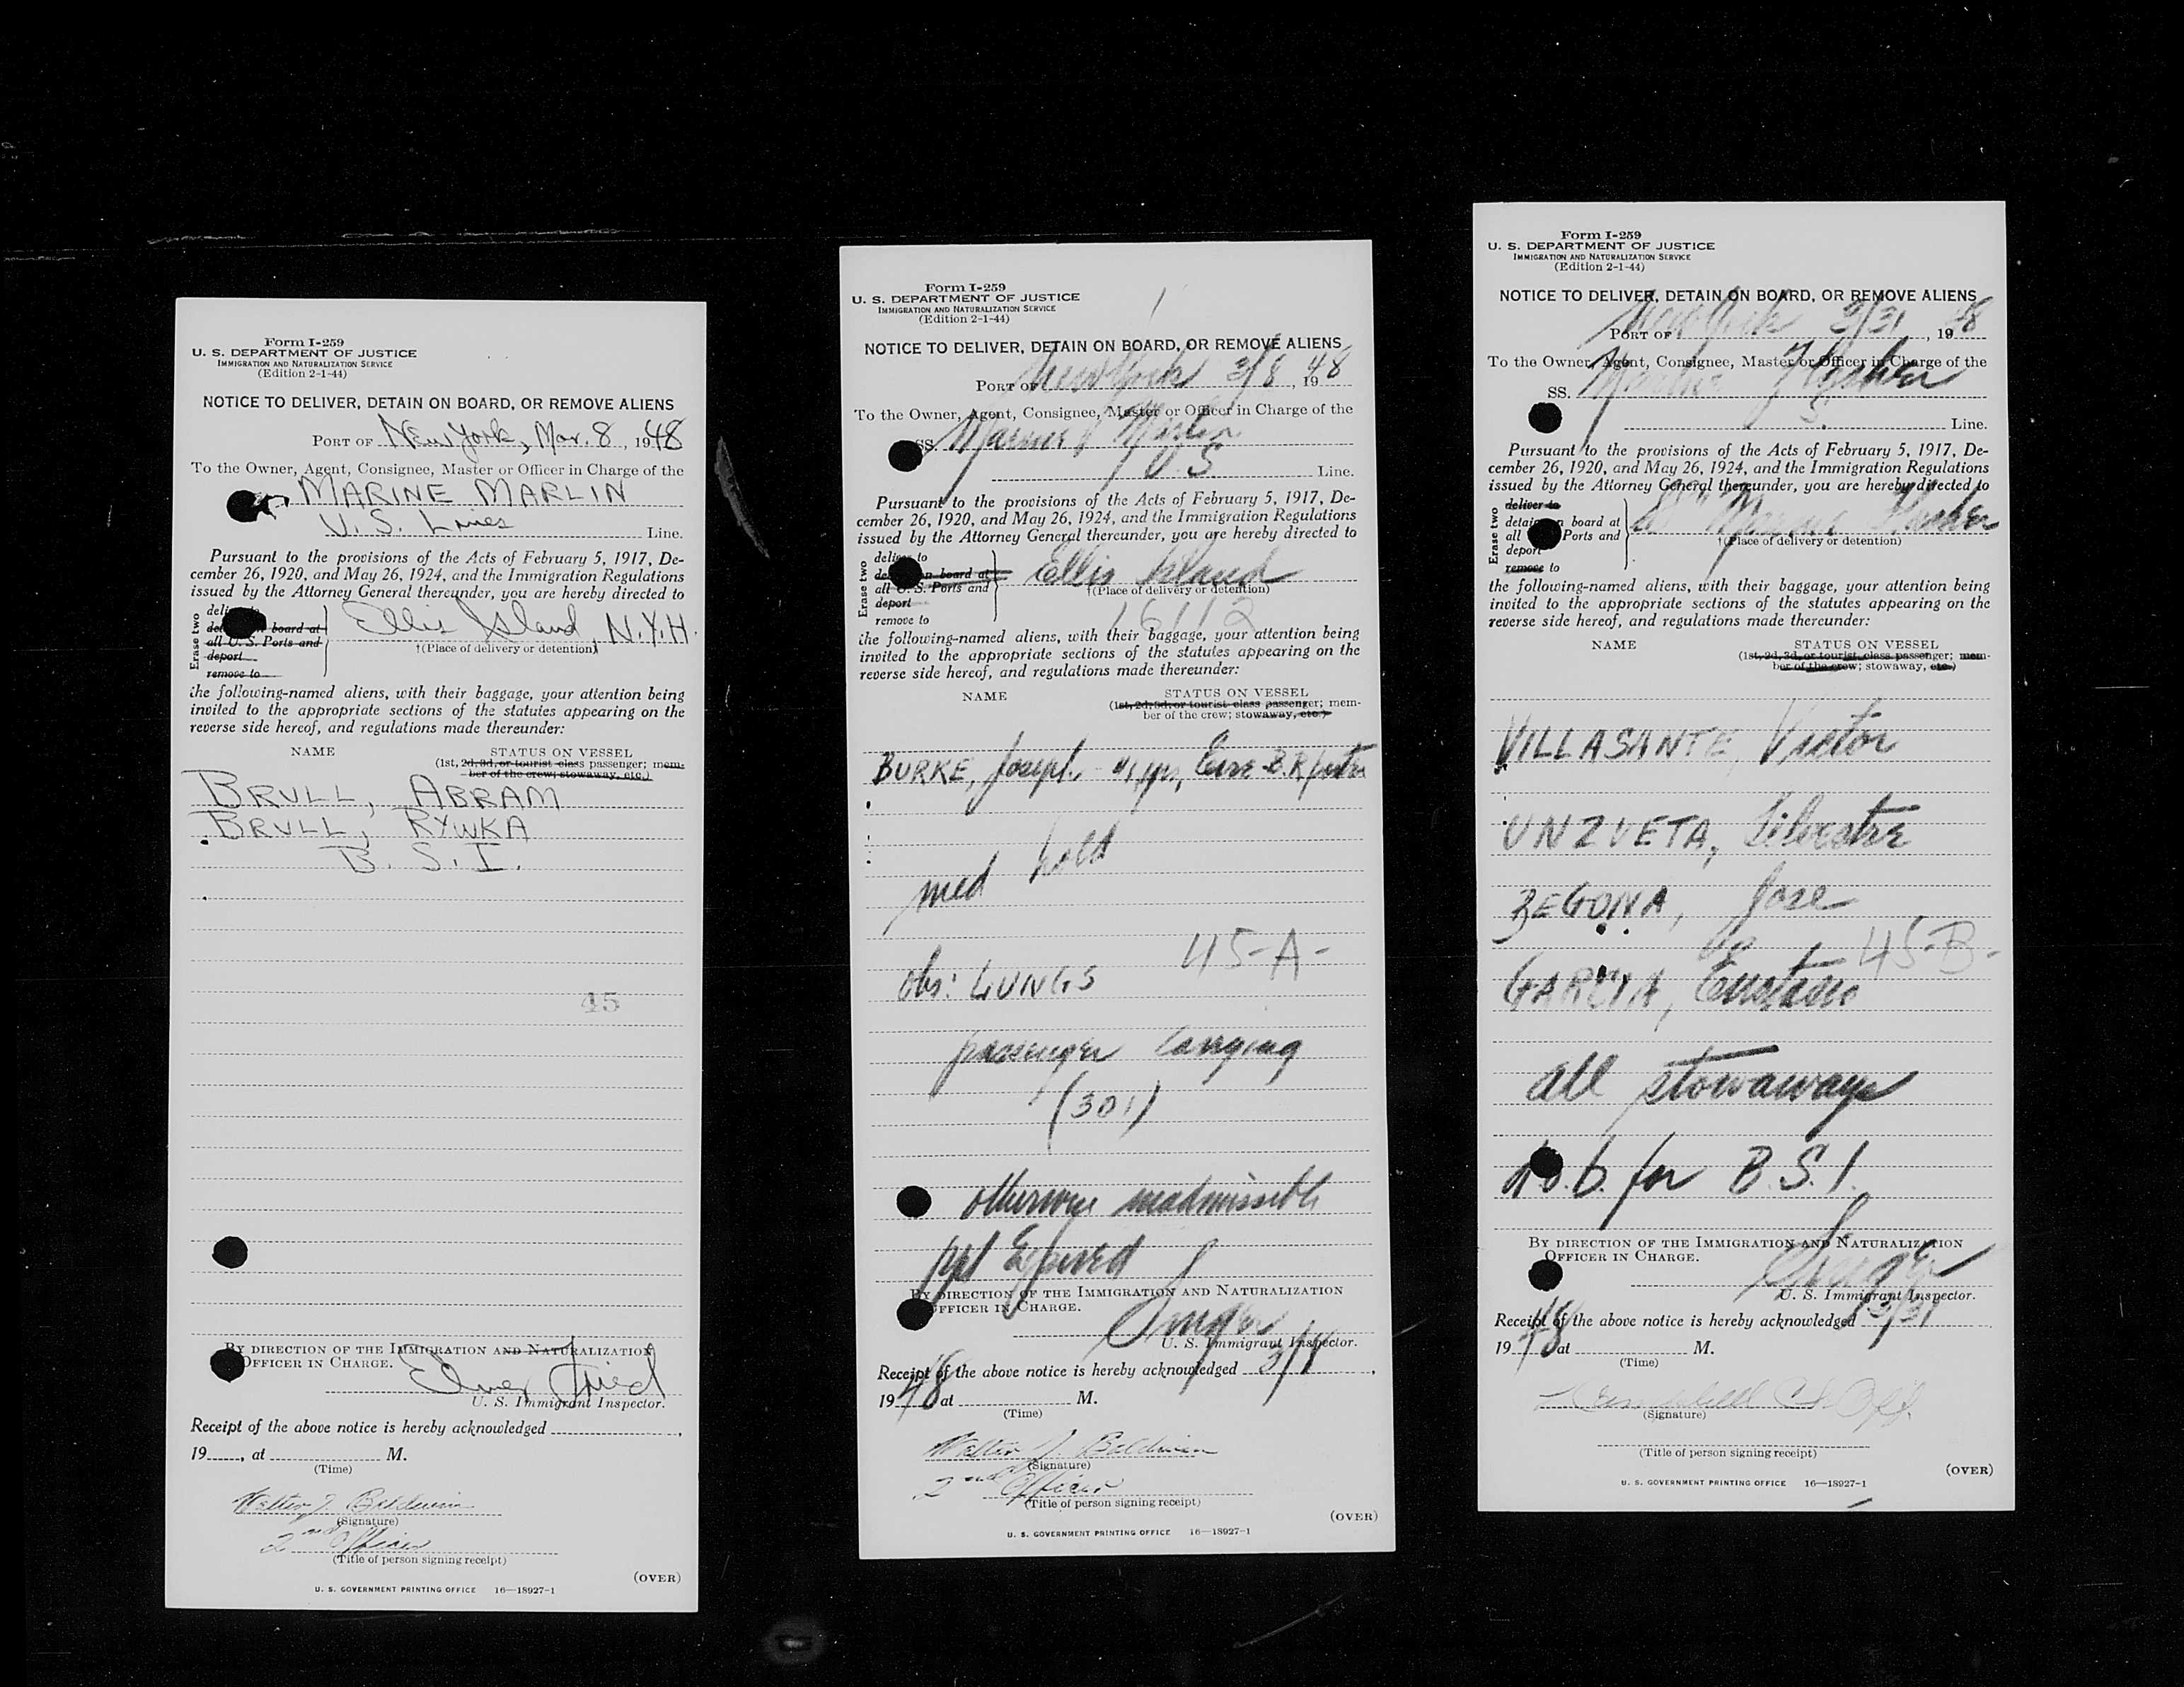 Form I-259
U. S. DEPARTMENT OF JUSTICE
IMMIGRATION AND NATURALIZATION SERVICE
(Edition 2-1-44)
NOTICE TO DELIVER, DETAIN ON BOARD, OR REMOVE ALIENS
PORT OF New York, Mar. 8, 1948
To the Owner, Agent, Consignee, Master or Officer in Charge of the
MARINE MARLIN
U. S. Lines Line.
Pursuant to the provisions of the Acts of February 5, 1917, De-
cember 26, 1920, and May 26, 1924, and the Immigration Regulations
issued by the Attorney General thereunder, you are hereby directed to
Erase two
board at
all U. S. Ports and
deport
remove to
Ellis Island, N.Y.H.
†(Place of delivery or detention)
the following-named aliens, with their baggage, your attention being
invited to the appropriate sections of the statutes appearing on the
reverse side hereof, and regulations made thereunder:
NAME STATUS ON VESSEL
(1st, 2d, 3d, or tourist class passenger; mem-
ber of the crew; stowaway, etc.)
BRULL, ABRAM
BRULL, RYWKA
B. S. I.
45
BY DIRECTION OF THE IMMIGRATION AND NATURALIZATION
OFFICER IN CHARGE.
Fried
U. S. Immigrant Inspector.
Receipt of the above notice is hereby acknowledged
19 , at M.
(Time)
Walter J. Baldwin
(Signature)
2nd Officer
(Title of person signing receipt)
(OVER)
U. S. GOVERNMENT PRINTING OFFICE 16—18927-1
Form I-259
U. S. DEPARTMENT OF JUSTICE
IMMIGRATION AND NATURALIZATION SERVICE
(Edition 2-1-44)
NOTICE TO DELIVER, DETAIN ON BOARD, OR REMOVE ALIENS
PORT OF New York 3/8, 1948
To the Owner, Agent, Consignee, Master or Officer in Charge of the
SS. Marine Marlin
U. S. Line.
Pursuant to the provisions of the Acts of February 5, 1917, De-
cember 26, 1920, and May 26, 1924, and the Immigration Regulations
issued by the Attorney General thereunder, you are hereby directed to
Erase two
deliver to
on board at
all U. S. Ports and
deport
remove to
Ellis Island
†(Place of delivery or detention)
16112
the following-named aliens, with their baggage, your attention being
invited to the appropriate sections of the statutes appearing on the
reverse side hereof, and regulations made thereunder:
NAME STATUS ON VESSEL
(1st, 2d, 3d, or tourist class passenger; mem-
ber of the crew; stowaway, etc.)
BURKE, Joseph
med hold
45-A-
obs: LUNGS
passenger
(301)
otherwise inadmissible
ppt Expired
BY DIRECTION OF THE IMMIGRATION AND NATURALIZATION
OFFICER IN CHARGE.
U. S. Immigrant Inspector.
Receipt of the above notice is hereby acknowledged 3/8,
1948 at M.
(Time)
Walter J. Baldwin
(Signature)
2nd Officer
(Title of person signing receipt)
(OVER)
U. S. GOVERNMENT PRINTING OFFICE 16—18927-1
Form I-259
U. S. DEPARTMENT OF JUSTICE
IMMIGRATION AND NATURALIZATION SERVICE
(Edition 2-1-44)
NOTICE TO DELIVER, DETAIN ON BOARD, OR REMOVE ALIENS
PORT OF New York 3/31, 1948
To the Owner, Agent, Consignee, Master or Officer in Charge of the
SS. Marine Flasher
Line.
Pursuant to the provisions of the Acts of February 5, 1917, De-
cember 26, 1920, and May 26, 1924, and the Immigration Regulations
issued by the Attorney General thereunder, you are hereby directed to
Erase two
deliver to
detain on board at
all Ports and
deport
remove to
Marine Flasher
†(Place of delivery or detention)
the following-named aliens, with their baggage, your attention being
invited to the appropriate sections of the statutes appearing on the
reverse side hereof, and regulations made thereunder:
NAME STATUS ON VESSEL
(1st, 2d, 3d, or tourist class passenger; mem-
ber of the crew; stowaway, etc.)
VILLASANTE, Victor
UNZUETA, Silvestre
BEGONA, Jose
45-B-
GARCIA, Eustasio
all stowaways
d.o.b. for B.S.I.
BY DIRECTION OF THE IMMIGRATION AND NATURALIZATION
OFFICER IN CHARGE.
U. S. Immigrant Inspector.
Receipt of the above notice is hereby acknowledged 3/31
1948 at M.
(Time)
(Signature)
(Title of person signing receipt)
(OVER)
U. S. GOVERNMENT PRINTING OFFICE 16—18927-1